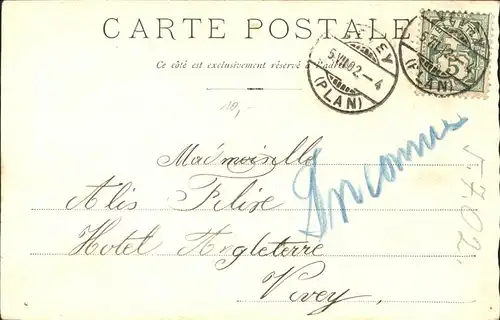 CARTE POSTALE
Ce côté est exclusivement réservé à l'adresse
VEVEY
5.VII.02-4
(PLAN)
VEVEY
5.VII.02
(PLAN)
5
10,-
Mademoiselle
Alis Felise
Hotel Angleterre
Vevey,
Inconnu
5.7.02.